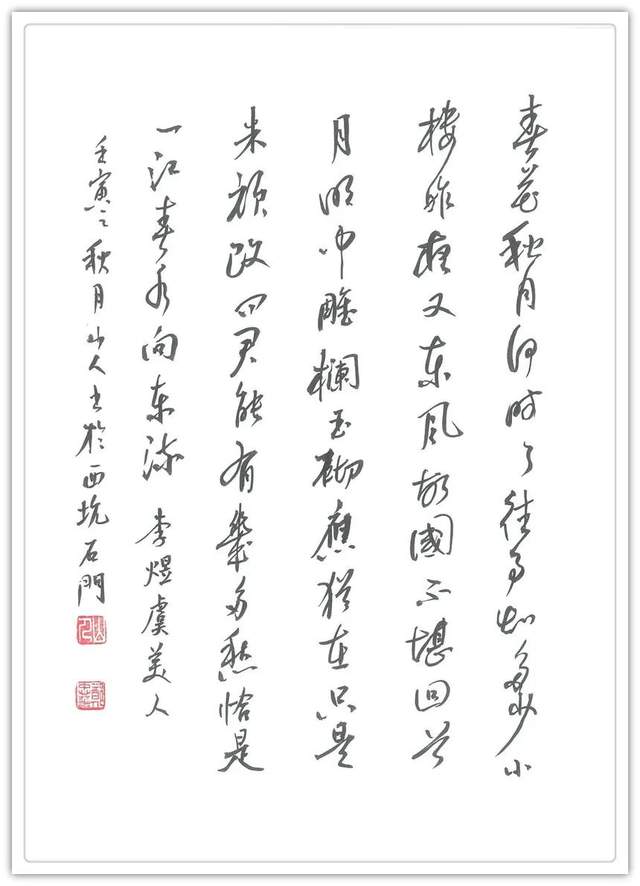 春花秋月何時了往事知多少小
樓昨夜又東風故國不堪回首
月明中雕欄玉砌應猶在只是
朱顏改問君能有幾多愁恰是
一江春水向東流 李煜虞美人
壬寅之秋月山人書於西坑石門